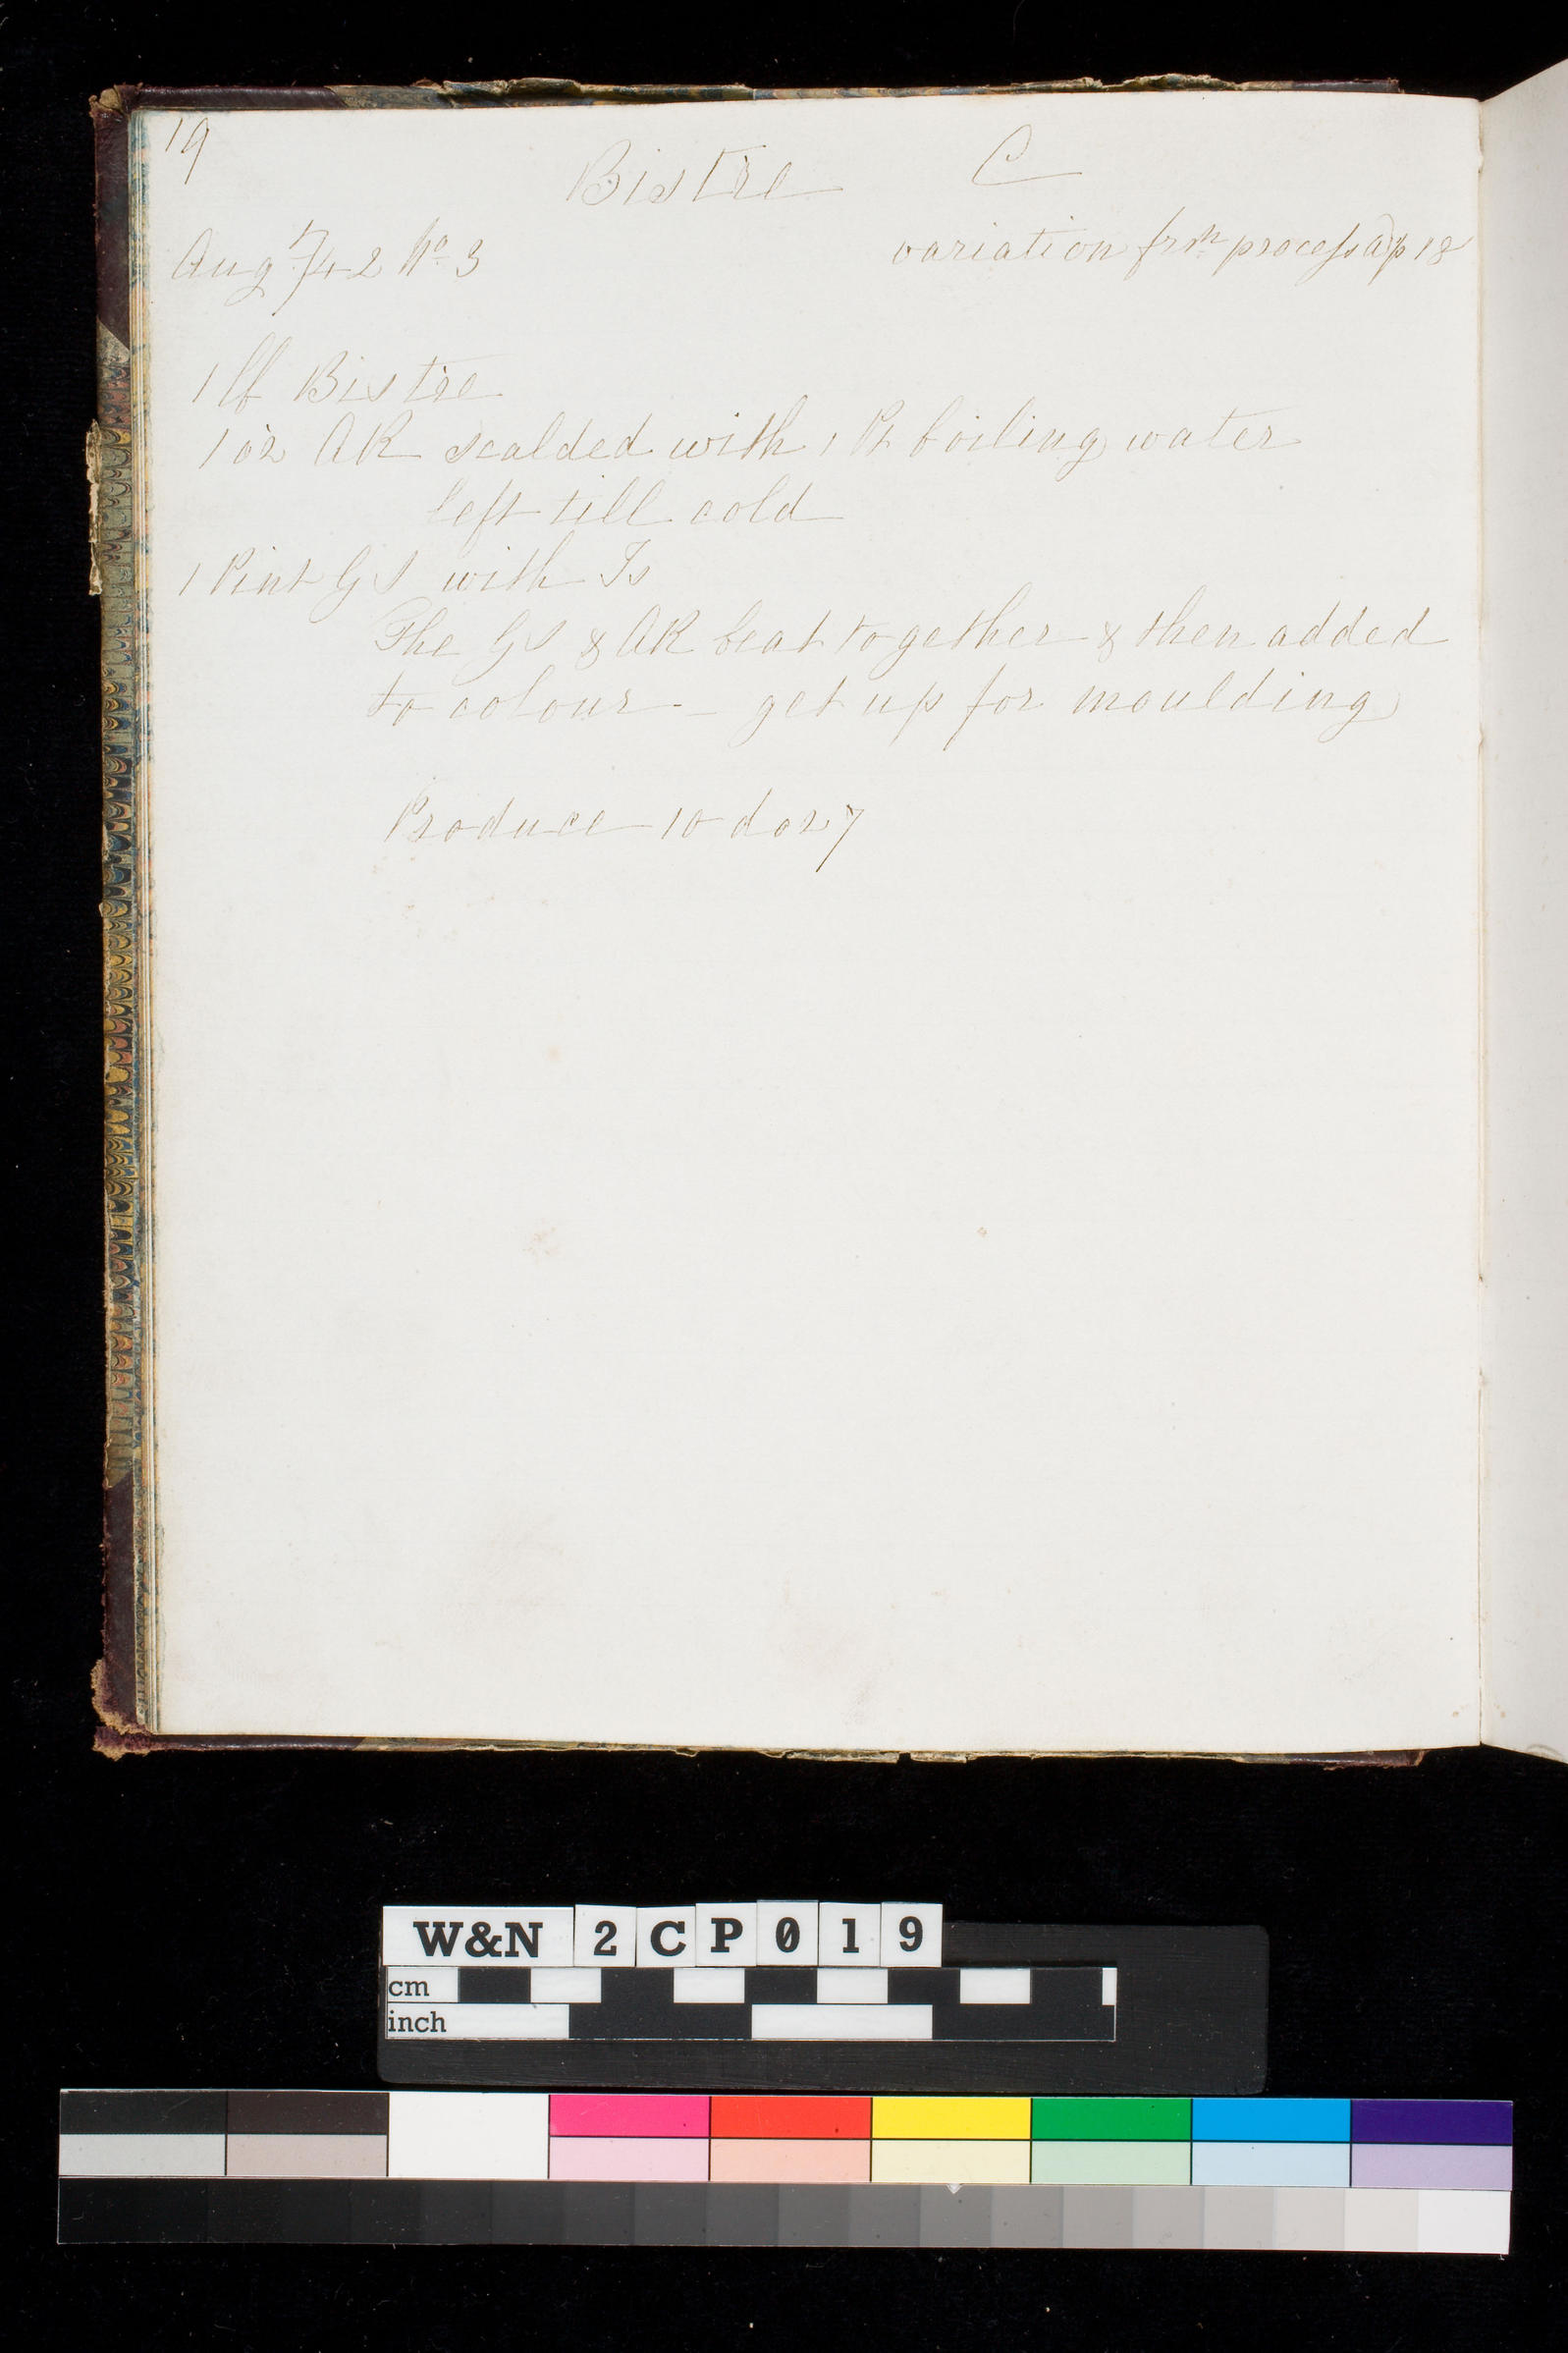 19
Bistre C
Aug 7/42 No 3 variation frm process a p 18
1 lb Bistre
1 oz AR scalded with 1 Pt boiling water
left till cold
1 Pint GS with Is
The GS & AR beat together & then added
to colour - get up for moulding
Produce 10 doz 7
W&N 2CP019
cm
inch